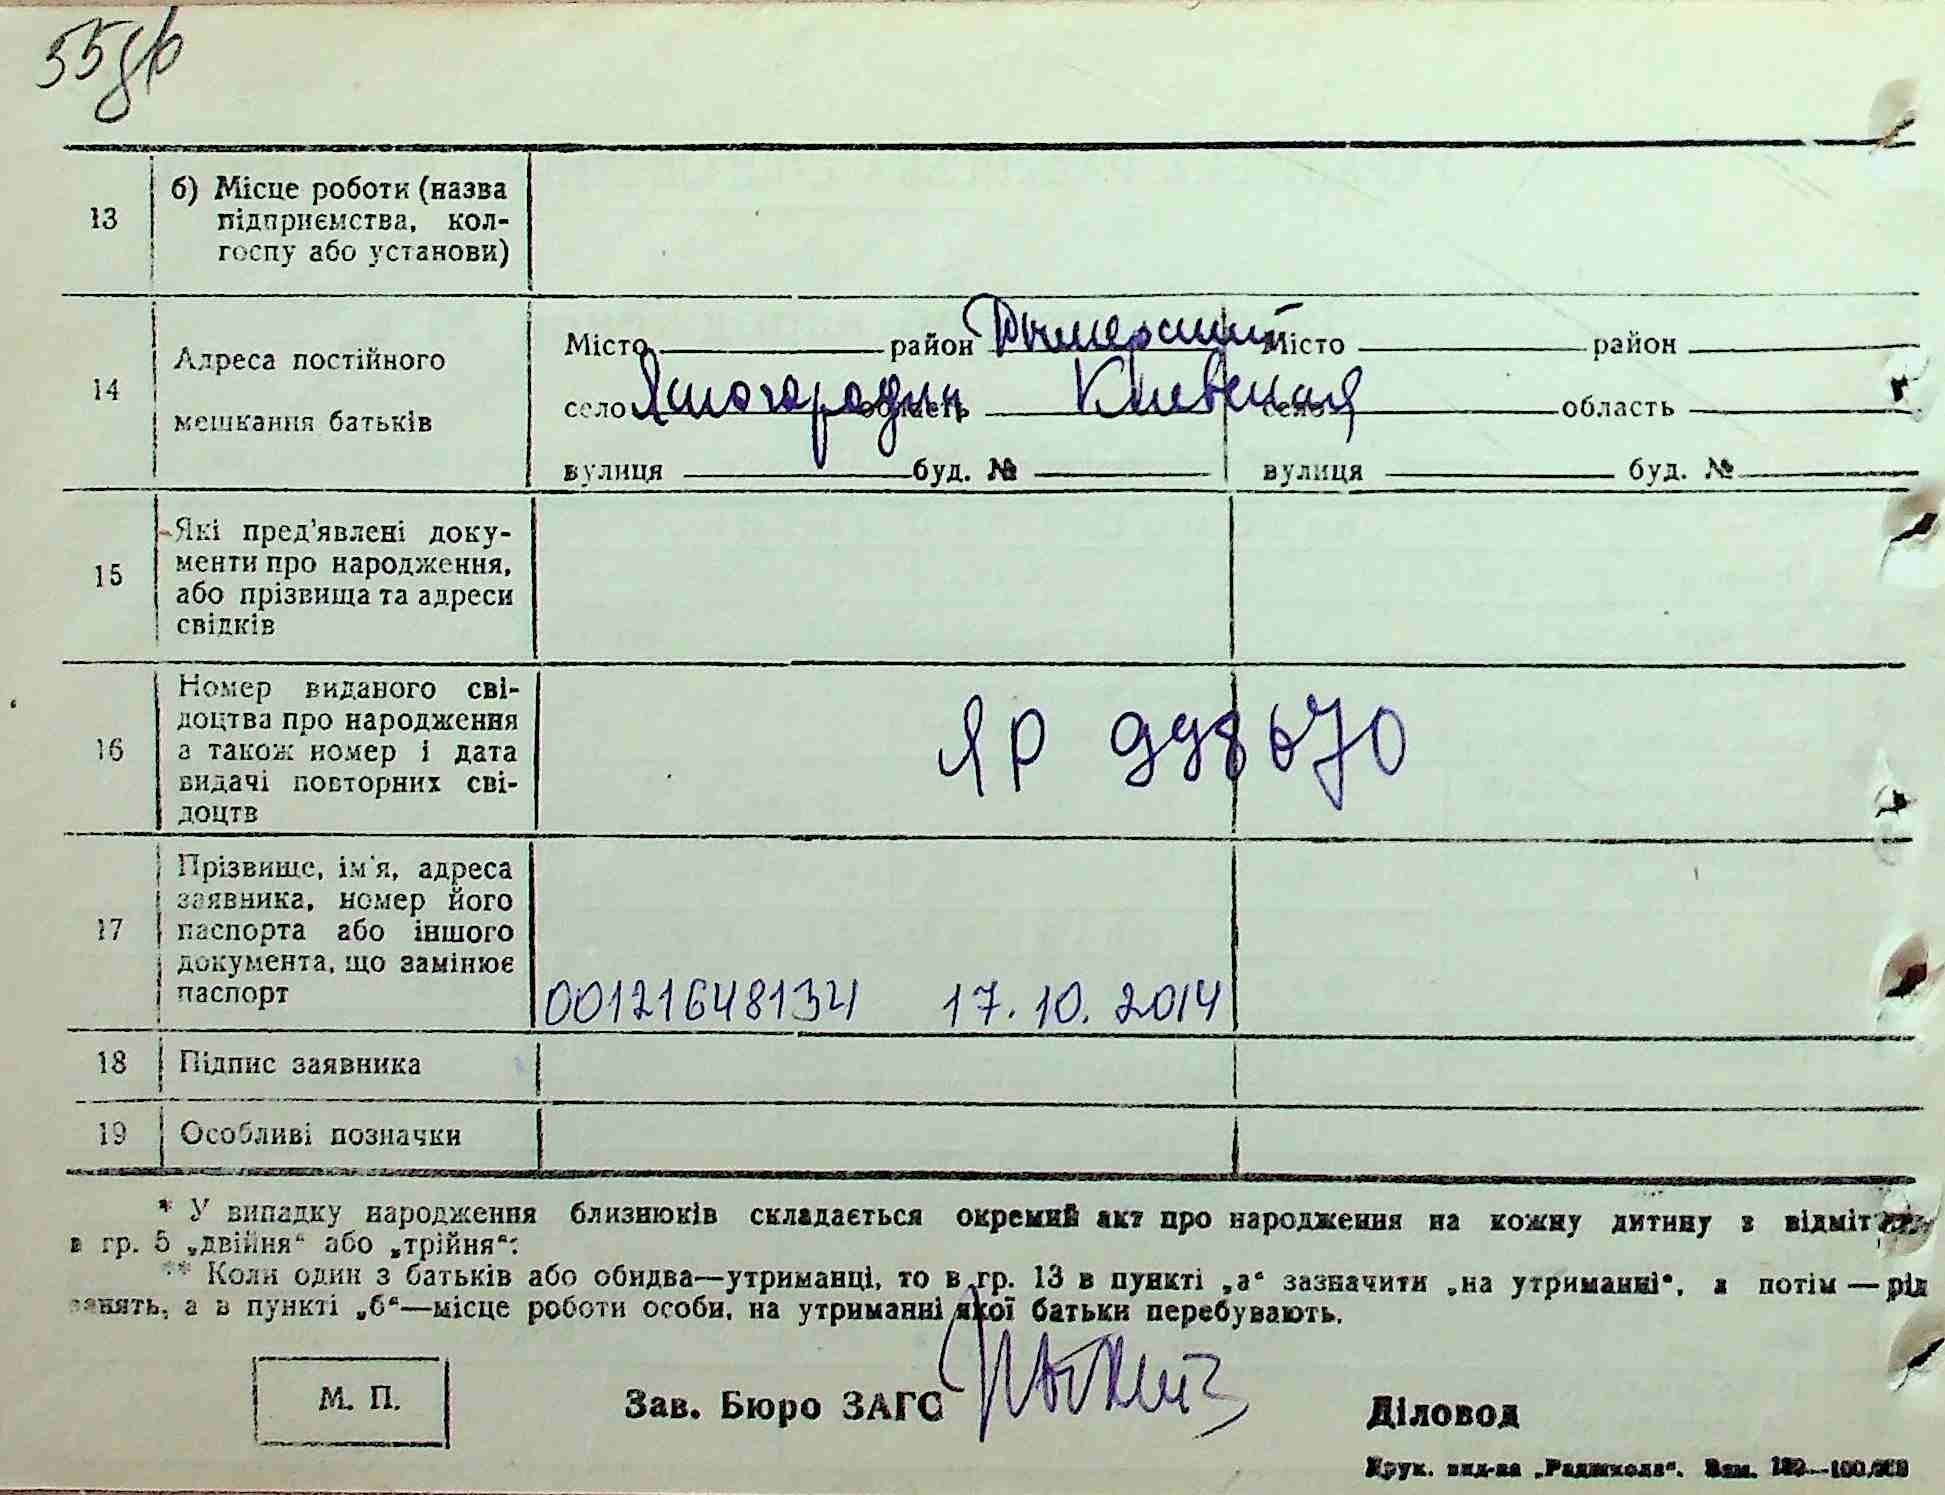 55зв
13
б) Місце роботи (назва
підприємства, кол-
госпу або установи)
14
Адреса постійного
мешкання батьків
Місто район Дымерский Місто район
село Ясногородки область Киевская село область
вулиця буд. № вулиця буд. №
15
Які пред'явлені доку-
менти про народження,
або прізвища та адреси
свідків
16
Номер виданого сві-
доцтва про народження
а також номер і дата
видачі повторних сві-
доцтв
ЯР 998670
17
Прізвище, ім'я, адреса
заявника, номер його
паспорта або іншого
документа, що замінює
паспорт
00121648134 17.10.2014
18 Підпис заявника
19 Особливі позначки
* У випадку народження близнюків складається окремий акт про народження на кожну дитину з відміт
в гр. 5 „двійня“ або „трійня“:
** Коли один з батьків або обидва—утриманці, то в гр. 13 в пункті „а“ зазначити „на утриманні“, а потім — рід
занять, а в пункті „б“—місце роботи особи, на утриманні якої батьки перебувають.
М. П.
Зав. Бюро ЗАГС
Діловод
Друк. вид-ва „Радшкола“. Зам. —100.000